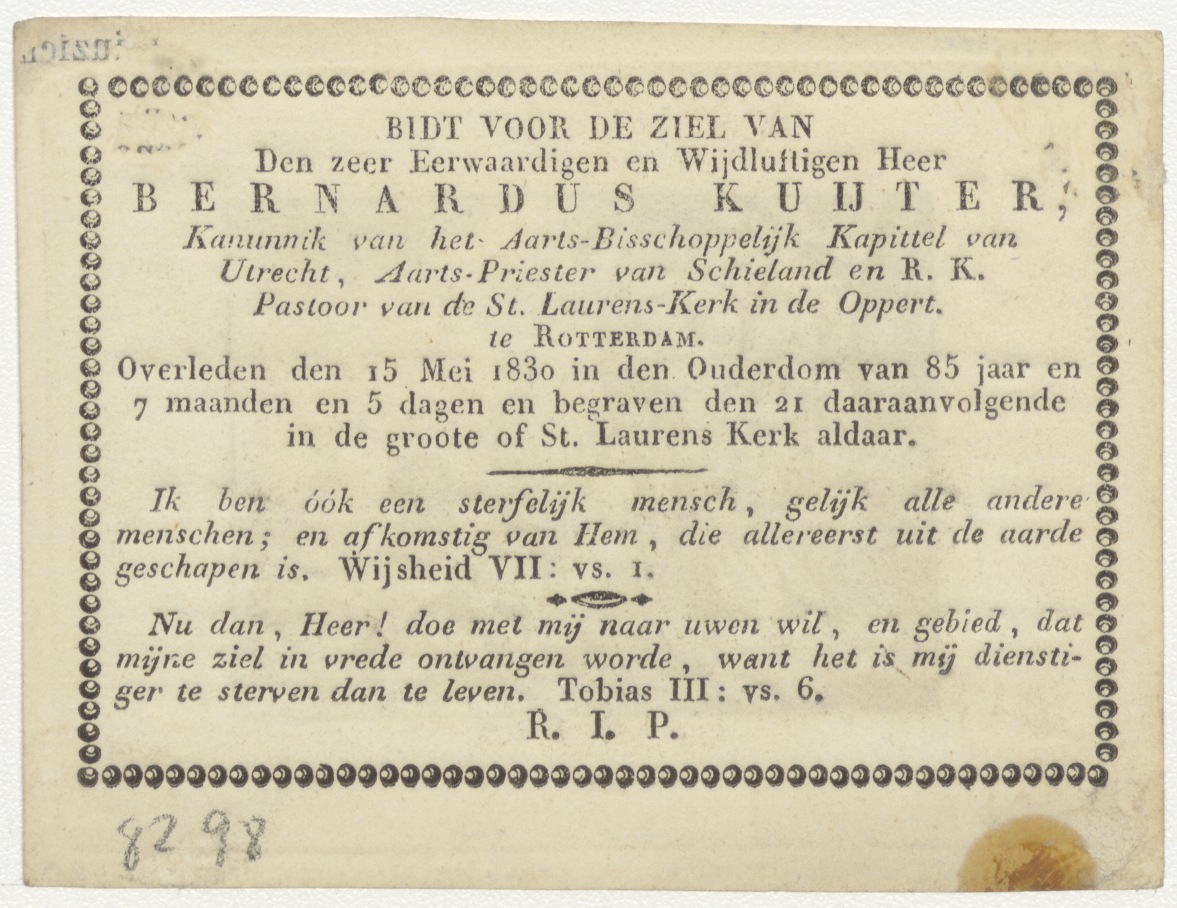 BIDT VOOR DE ZIEL VAN
Den zeer Eerwaardigen en Wijdluftigen Heer
BERNARDUS KUIJTER,
Kanunnik van het Aarts-Bisschoppelijk Kapittel van
Utrecht, Aarts-Priester van Schieland en R. K.
Pastoor van de St. Laurens-Kerk in de Oppert.
te ROTTERDAM.
Overleden den 15 Mei 1830 in den Ouderdom van 85 jaar en
7 maanden en 5 dagen en begraven den 21 daaraanvolgende
in de groote of St. Laurens Kerk aldaar.
Ik ben óók een sterfelijk mensch, gelijk alle andere
menschen; en afkomstig van Hem, die allereerst uit de aarde
geschapen is. Wijsheid VII: vs. 1.
Nu dan, Heer! doe met mij naar uwen wil, en gebied, dat
mijne ziel in vrede ontvangen worde, want het is mij diensti-
ger te sterven dan te leven. Tobias III: vs. 6.
R. I. P.
8298